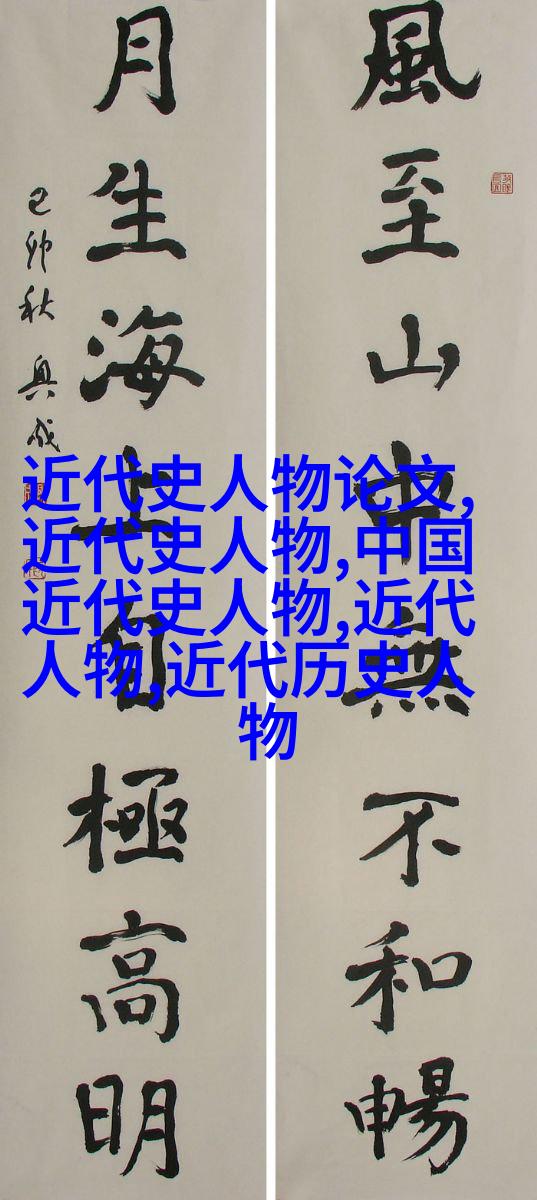 風至山中無不和暢
月生海上自極高明
己卯秋 興成
近代史人物论文,
近代史人物,中国
近代史人物,近代
人物,近代历史人
物